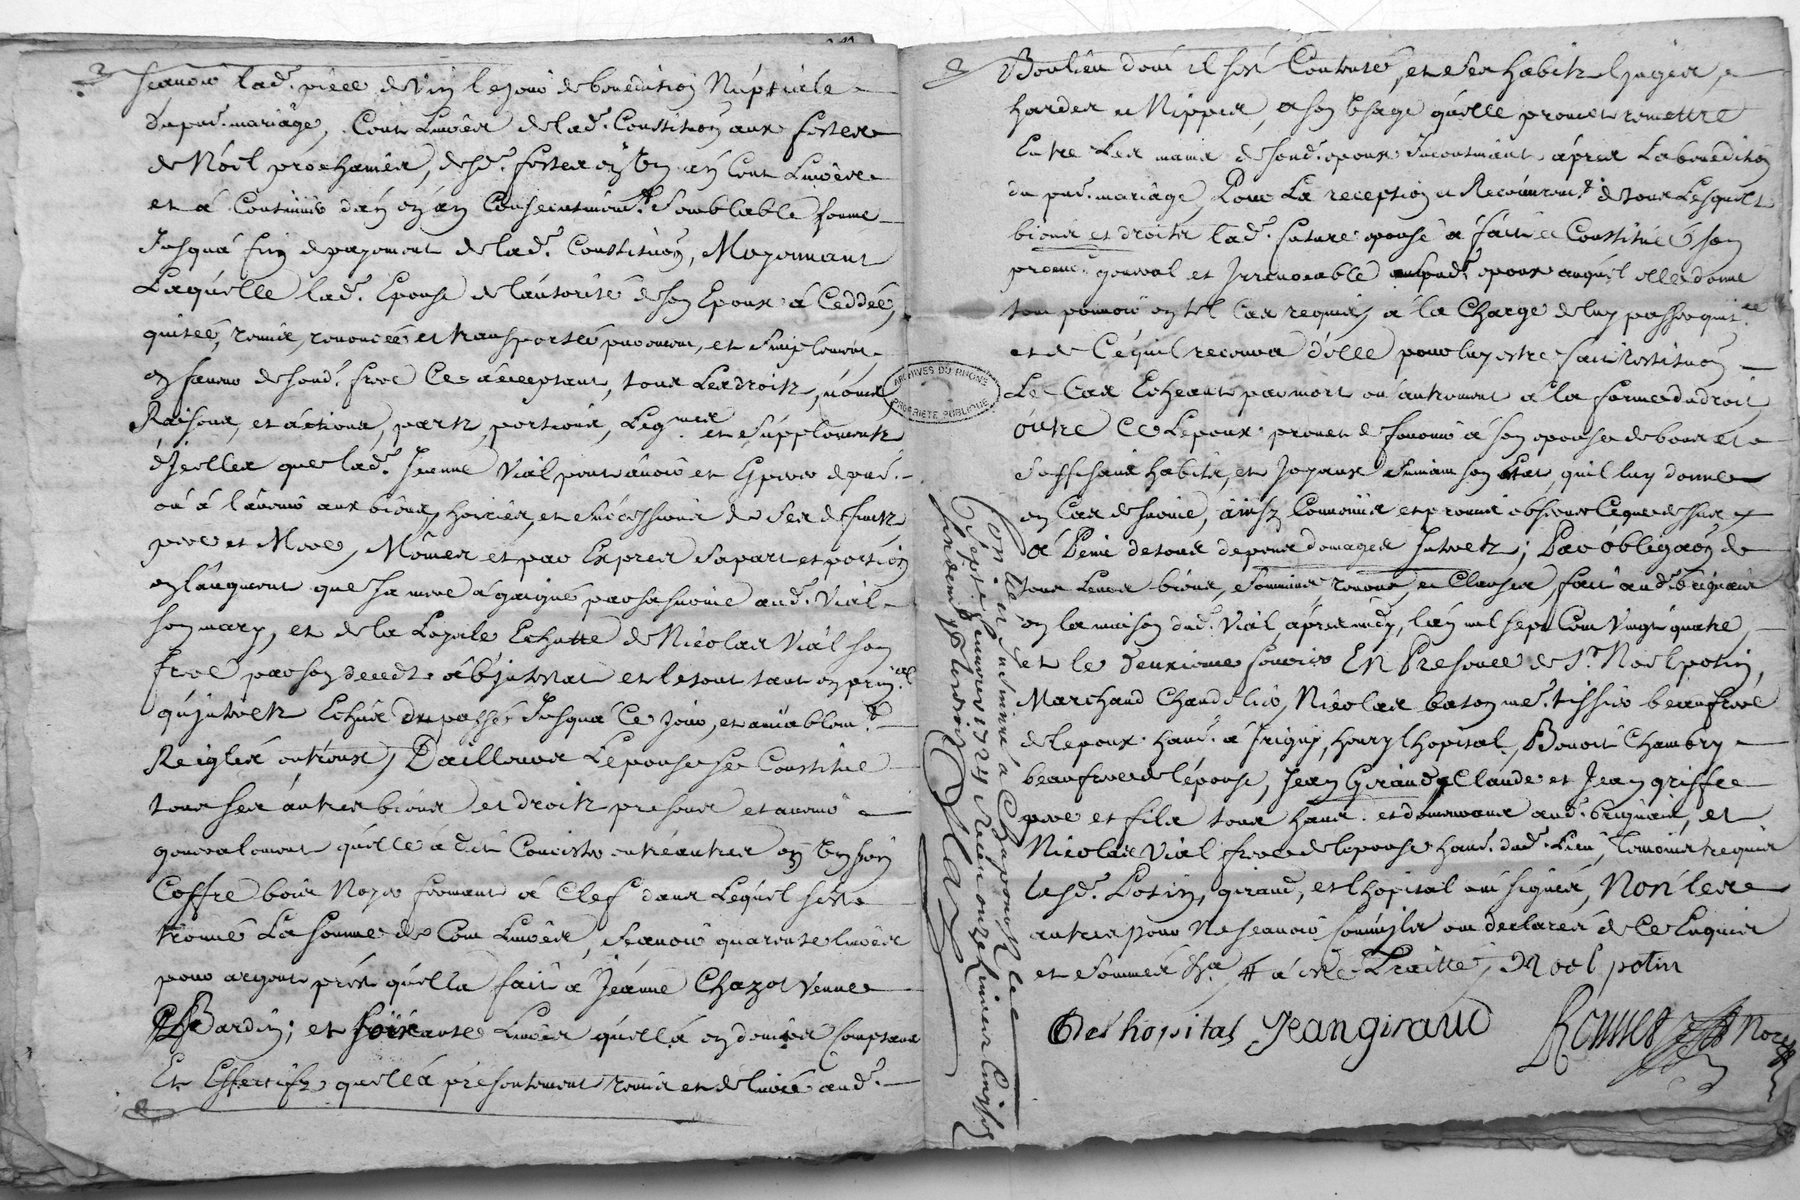 scavoir lad. piece de vin le jour de benediction Nuptialle
du pnt. mariage, Cent Livres de lad. Constitution aux festes
de Noël prochaines, desd. festes en Un an Cent Livres
et à Continuer d'an en an Consecutivemt. Semblable somme
Jusqu'a fin de payement de lad. Constituon, Moyennant
Laquelle lad. Epouse de l'autorité de son Epoux à Ceddée,
quitée, remis, renoncée et transportée purement, et Simplement
en faveur de sond. frere Ce acceptant, tous Les droits, noms
Raisons, et actions, parts, portions, Legmes. et Supplements
d'Jcelles que lad. Jeanne Vial peut avoir et Esperer de pnt.
ou à l'avenir aux biens, hoiries, et Successions de Ses deffunts
pere et Mere, Mêmes et par Exprés Sa part et portion
en l'augment que Sa mere a gaigné par sa survie aud. Vial
Son mary, et de la Legale Echutte de Nicolas Vial son
frere par son deceds ab intestat et le tout tant en prinal.
qu'jnterets Echûs du passé Jusqu'a Ce jour, et amiablemt.
Reiglés entr'eux, D'ailleurs L'epouse se Constitue
tous ses autres biens et droits presens et avenir
generalement qu'elle à dit Consister entre autres en Un son
Coffre bois Noyer fermant à Clef dans Lequel s'est
trouvé La somme de Cent Livres, scavoir quarante livres
pour argent prêt qu'ella fait à Jeanne Chazot veuve
Bardin; et soixante Livres qu'ell'a en deniers Comptans
Et Effectifs qu'ell'a presentement remis et delivré aud.
Boulieu dont il s'est Contenté, et Ses habits linges,
hardes et Nippes, a son Usage qu'elle promet remettre
Entre Les mains de sond. epoux Incontinant aprés La benediction
du pnt. mariage, Pour La reception et Recouvremt. de tous Lesquels
biens et droits lad. future epouse à fait et Constitué son
procur. general et Irrevocable sond. epoux auquel elle donne
tout pouvoir en tel Cas requis, à la Charge de luy passer quitce.
et de Ce qu'il recevra d'elle pour luy estre fait restituon
Le Cas Echeant par mort ou autrement a la forme du droit
outre Ce L'epoux promet de fournir à Son epouse de bons et
Suffisans habits, et Joyaux Suivant son Etat, qu'il luy donne
en Cas de survie, ainsy Convenu et promis observer Ce que dessus
à Peine de tous depens domages Interets; Par obligaon de
tous Leurs biens, Soumissions, renons., et Clauses, fait aud. Brignais
en la maison dud. Vial, aprés midy, l'an mil sept Cent Vingt quatre,
et le deuxieme fevrier EN Presence de Sr. Noël potin,
Marchand Chandelier, Nicolas baton me. tissier beaufrere
de l'epoux hant. à Irigny, henry lhopital, Benoit Chambry
beaufrere de l'épouse, Jean Giraud, Claude et Jean griffe
pere et fils tous hans. et demeurans aud. Brignais, et
Nicolas Vial frere de l'epouse hant. dud. Lieu, temoins requis
lesd. Potin, giraud, et lhopital ont signés, Non Les
autres pour Ne scavoir, Comm'ils ont declarés de Ce Enquis
et Sommés à cede Traitté, Noel potin
lhopital Jean giraud
Controllé et Insinué à Chaponost le
Sept fevrier 1724
ARCHIVES DU RHÔNE
PROPRIÉTÉ PUBLIQUE